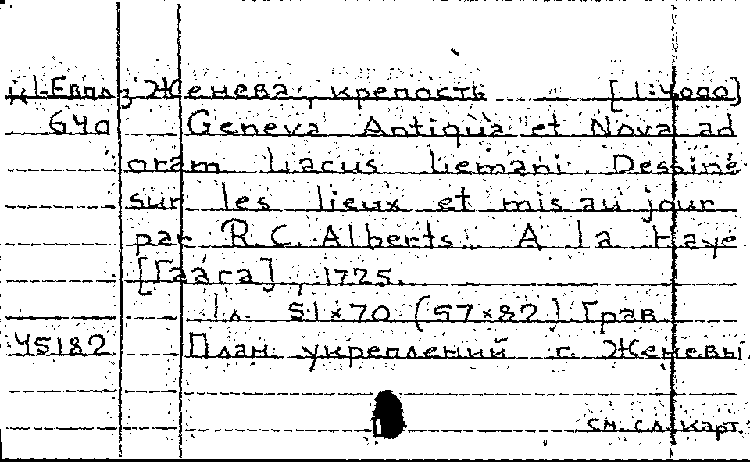 К 1-Евпл 3 Женева, крепость [1:4000]
640 Geneva Antiqua et Nova ad
oram Lacus Lemani. Dessiné
sur les lieux et mis au jour
par R.C. Alberts. A la Haye
[Гаага], 1725.
1 л. 51×70 (57×82) Грав.
45182 План укреплений г. Женевы.
см. сл. карт.